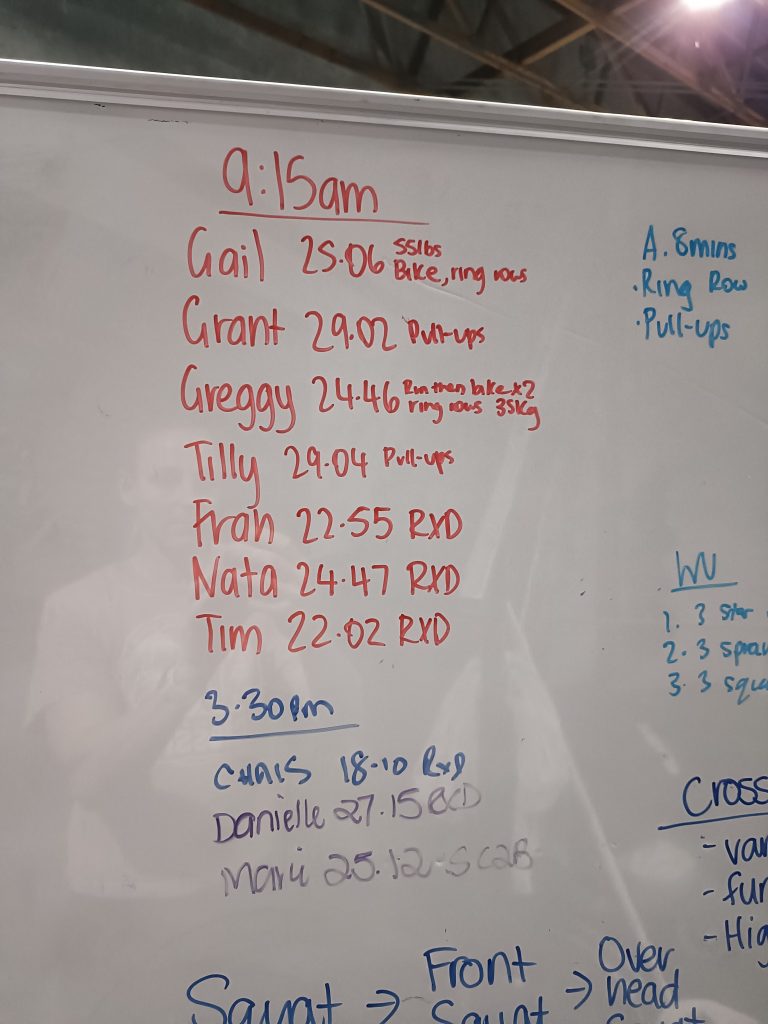 9:15am
Gail 25.06 55lbs
Bike, ring rows
Grant 29.02 Pull-ups
Greggy 24.46 Run then bike x2
ring rows 35kg
Tilly 29.04 Pull-ups
Fran 22.55 RXD
Nata 24.47 RXD
Tim 22.02 RXD
3.30pm
CHRIS 18.10 RXD
Danielle 27.15
25.12
Squat → Front
Squat → Over
head
A. 8mins
·Ring Row
·Pull-ups
WU
1. 3
2. 3
3. 3
Cross
-
-
-